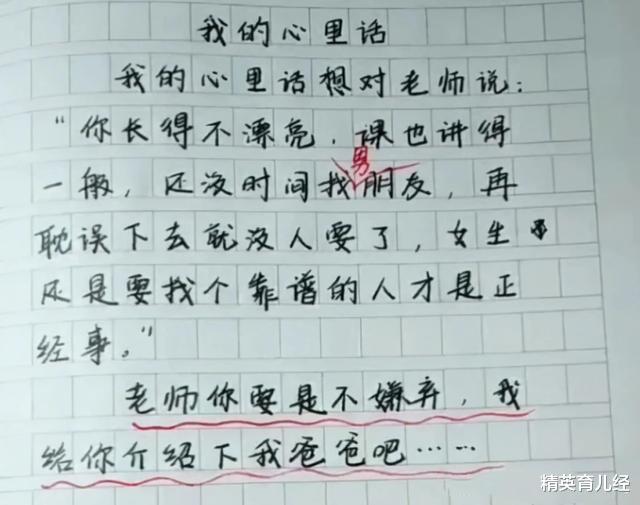 我的心里话
我的心里话想对老师说：
“你长得不漂亮，课也讲得
一般，还没时间找男朋友，再
耽误下去就没人要了，女生
还是要找个靠谱的人才是正
经事。”
老师你要是不嫌弃，我
给你介绍下我爸爸吧……
精英育儿经